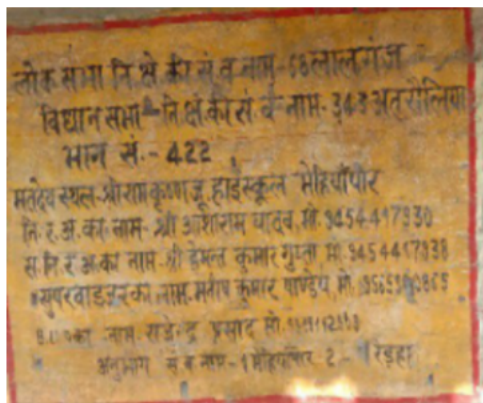 लोक सभा नि.क्षे.की सं.व नाम-68 लालगंज
विधान सभा-नि.क्षे.की सं.व-नाम-343 अतरौलिया
भाग सं.-422
मतदेय स्थल-श्री राम कृष्ण जू. हाईस्कूल मेहियाँपार
नि.र.अ.का नाम-श्री आशाराम यादव, मो. 9454417930
स.नि.र.अ.का नाम-श्री हेमन्त कुमार गुप्ता मो. 9454417938
सुपरवाइजर का नाम-मनीष कुमार पाण्डेय, मो.
का नाम-राजेन्द्र प्रसाद मो.
अनुभाग सं व नाम-1 मेहियापार 2-रेडहा